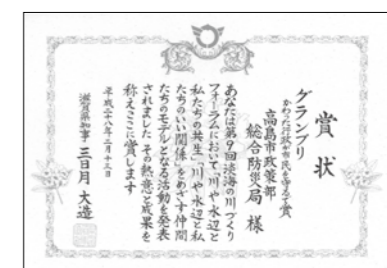 賞状
グランプリ
かわった行政が市民を守るで賞
高島市政策部
総合防災局 様
あなたは第9回淡海の川づくり
フォーラムにおいて「川や水辺と
私たちの共生」「川や水辺と私
たちのいい関係」をめざす仲間
たちのモデルとなる活動を発表
されました その熱意と成果を
称えここに賞します
平成二十八年二月十三日
滋賀県知事 三日月 大造